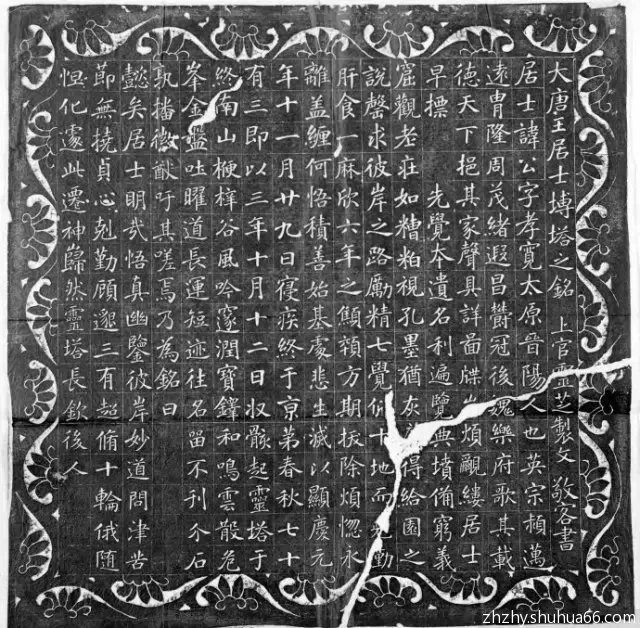 大唐王居士塼塔之銘 上官靈芝製文 敬客書
居士諱公字孝寬太原晉陽人也英宗頴邁
遠冑隆周茂緒遐昌欝冠後魏樂府歌其載
德天下挹其家聲具詳啚牒 煩覼縷居士
早摽 先覺本遺名利遍覽典墳備窮義
窟觀老莊如糟粕視孔墨猶灰 得給園之
說罄求彼岸之路勵精七覺俻十地而 勤
肝食一麻欣六年之顦顇方期拔除煩惚永
離盖纏何悟積善始基處悲生滅以顯慶元
年十一月廿九日寑疾終于京第春秋七十
有三即以三年十月十二日收骸起靈塔于
終南山梗梓谷風吟邃澗寶鐸和鳴雲散危
峯金盤吐曜道長運短迹往名留不刊介石
孰播徽猷吁其嗟焉乃為銘曰
懿矣居士明哉悟真幽鑒彼岸妙道問津苦
節無撓貞心剋勤顧邈三有超脩十輪俄随
怛化遽此遷神巋然靈塔長欽後人
zhzhy.shuhua66.com